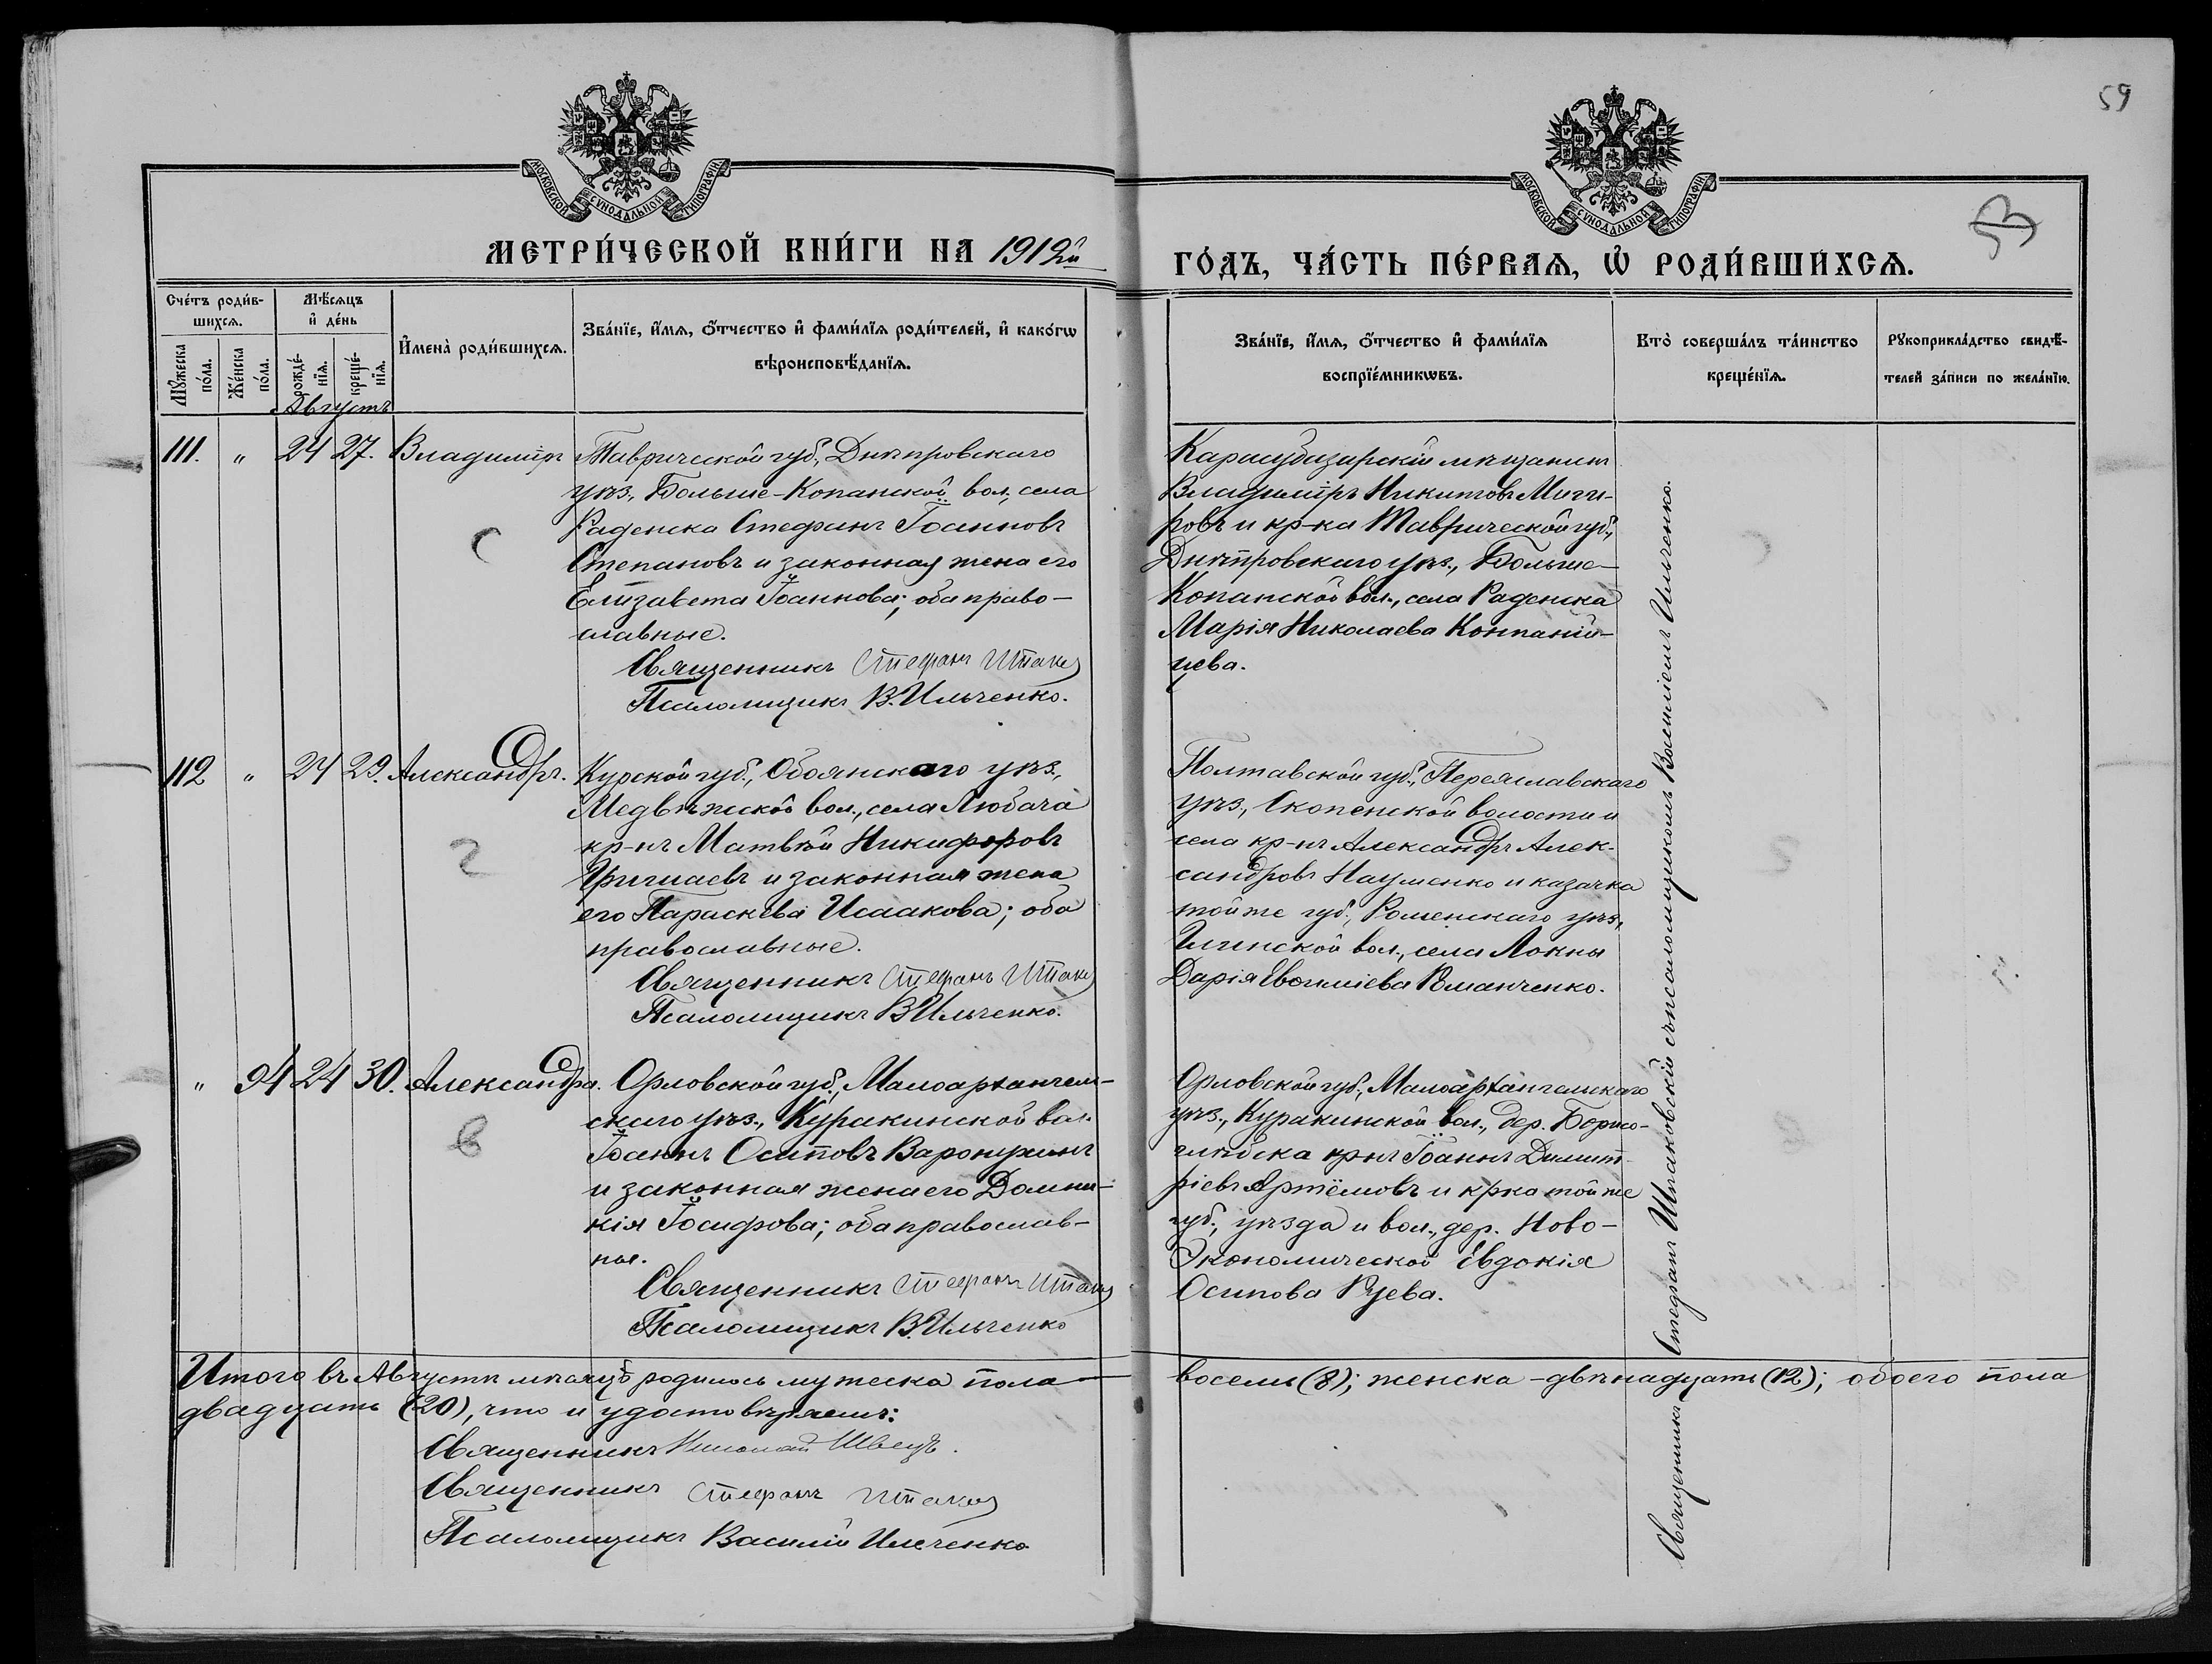 59
МОСКОВСКОЙ СѴНОДАЛЬНОЙ ТИПОГРАФІИ
МОСКОВСКОЙ СѴНОДАЛЬНОЙ ТИПОГРАФІИ
МЕТРИ́ЧЕСКОЙ КНИ́ГИ НА 1912й
ГО́ДЪ, ЧА́СТЬ ПЕ́РВАѦ, Ѡ҆ РОДИ́ВШИХСѦ.
Сче́тъ роди́в-
шихсѧ.
Мѣ́сѧцъ
и҆ де́нь
Мꙋ́жеска
по́ла.
Же́нска
по́ла.
рожде́-
нїѧ.
креще́-
нїѧ.
И҆мена̀ роди́вшихсѧ.
Зва́нїе, и҆́мѧ, ѻ҆́тчество и҆ фами́лїѧ роди́телей, и҆ како́гѡ
вѣроисповѣ́данїѧ.
Зва́нїе, и҆́мѧ, ѻ҆́тчество и҆ фами́лїѧ
воспрїе́мникѡвъ.
Кто̀ соверша́лъ та́инство
креще́нїѧ.
Рꙋкоприкла́дство свидѣ́-
телей за́писи по жела́нїю.
Августъ
111. " 24 27. Владиміръ
Таврической губ., Днѣпровскаго
уѣз., Больше-Копанской вол., села
Раденска Стефанъ Іоанновъ
Степановъ и законная жена его
Елизавета Іоаннова; оба право-
славные.
Священникъ Стефанъ Шпак
Псаломщикъ В. Ильченко.
Карасубазарскій мѣщанинъ
Владиміръ Никитовъ Миги-
ровъ и кр-ка Таврической губ.,
Днѣпровскаго уѣз., Больше-
Копанской вол., села Раденска
Марія Николаева Компаній-
цева.
112 " 24 29. Александръ.
Курской губ., Обоянскаго уѣз.,
Медвѣнской вол., села Любача
кр-нъ Матвѣй Никифоровъ
и законная жена
его Параскева Исаакова; оба
православные.
Священникъ Стефанъ Шпак
Псаломщикъ В. Ильченко.
Полтавской губ., Переяславскаго
уѣз., Скопенской волости и
села кр-нъ Александръ Алек-
сандровъ Науменко и казачка
той же губ., Роменскаго уѣз.,
Глинской вол., села Локни
Дарія Евѳиміева Романченко.
" 94 24 30. Александра.
Орловской губ., Малоархангель-
скаго уѣз., Куракинской вол.
Іоаннъ Осиповъ
и законная жена его Домни-
кія Іосифова; оба православ-
ныя.
Священникъ Стефанъ Шпак
Псаломщикъ В. Ильченко
Орловской губ., Малоархангельскаго
уѣз., Куракинской вол., дер. Борисо-
глѣбска крнъ Іоаннъ Димит-
ріевъ Артёмовъ и крка той же
губ., уѣзда и вол., дер. Ново-
Экономической Евдокія
Осипова Руева.
Священникъ Стефанъ Шпаковскій съ псаломщикомъ Василіемъ Ильченко.
Итого въ Августѣ мѣсяцѣ родилось мужеска пола
восемь (8); женска - двѣнадцать (12); обоего пола
двадцать (20), что и удостовѣряемъ:
Священникъ Николай Швецъ.
Священникъ Стефанъ Шпак
Псаломщикъ Василій Ильченко